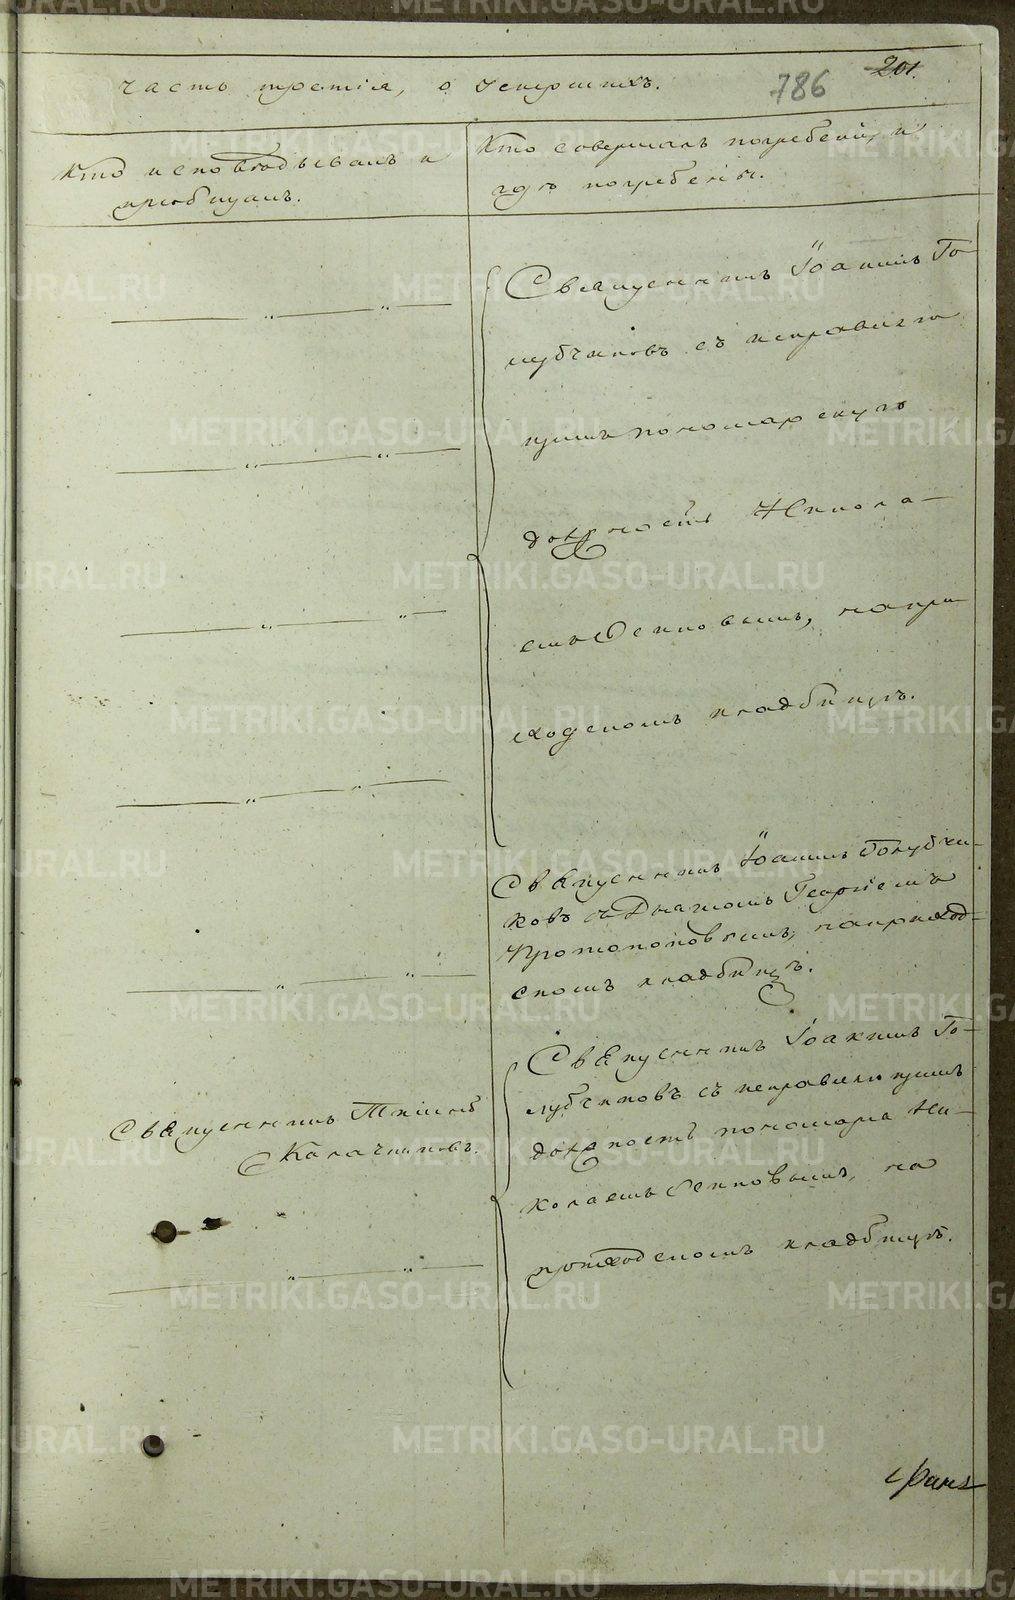 201.
786
часть третія, о Умершихъ.
Кто исповѣдывалъ и
пріобщалъ.
Кто совершалъ погребеніе, и
гдѣ погребены.
Священникъ Іоакимъ Го-
лубчиковъ съ исправляю-
щимъ пономарскую
должность Никола-
емъ Сенновымъ, на при-
ходскомъ кладбищѣ.
Священникъ Іоакимъ Голубчи-
ковъ съ Діакономъ Георгіемъ
Протопоповымъ, на приход-
скомъ кладбищѣ.
Священникъ
Калачниковъ.
Священникъ Іоакимъ Го-
лубчиковъ съ исправляющимъ
должность пономаря Ни-
колаемъ Сенновымъ, на
приходскомъ кладбищѣ.
METRIKI.GASO-URAL.RU